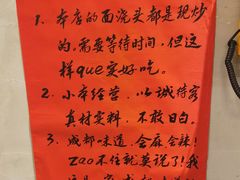 1. 本店的面浇头都是现炒
的,需要等待时间,但这
样que实好吃。
2. 小本经营,以诚待客
真材实料,不敢白日。
3. 成都味道,会麻会辣!
Zao不住就莫说了!我